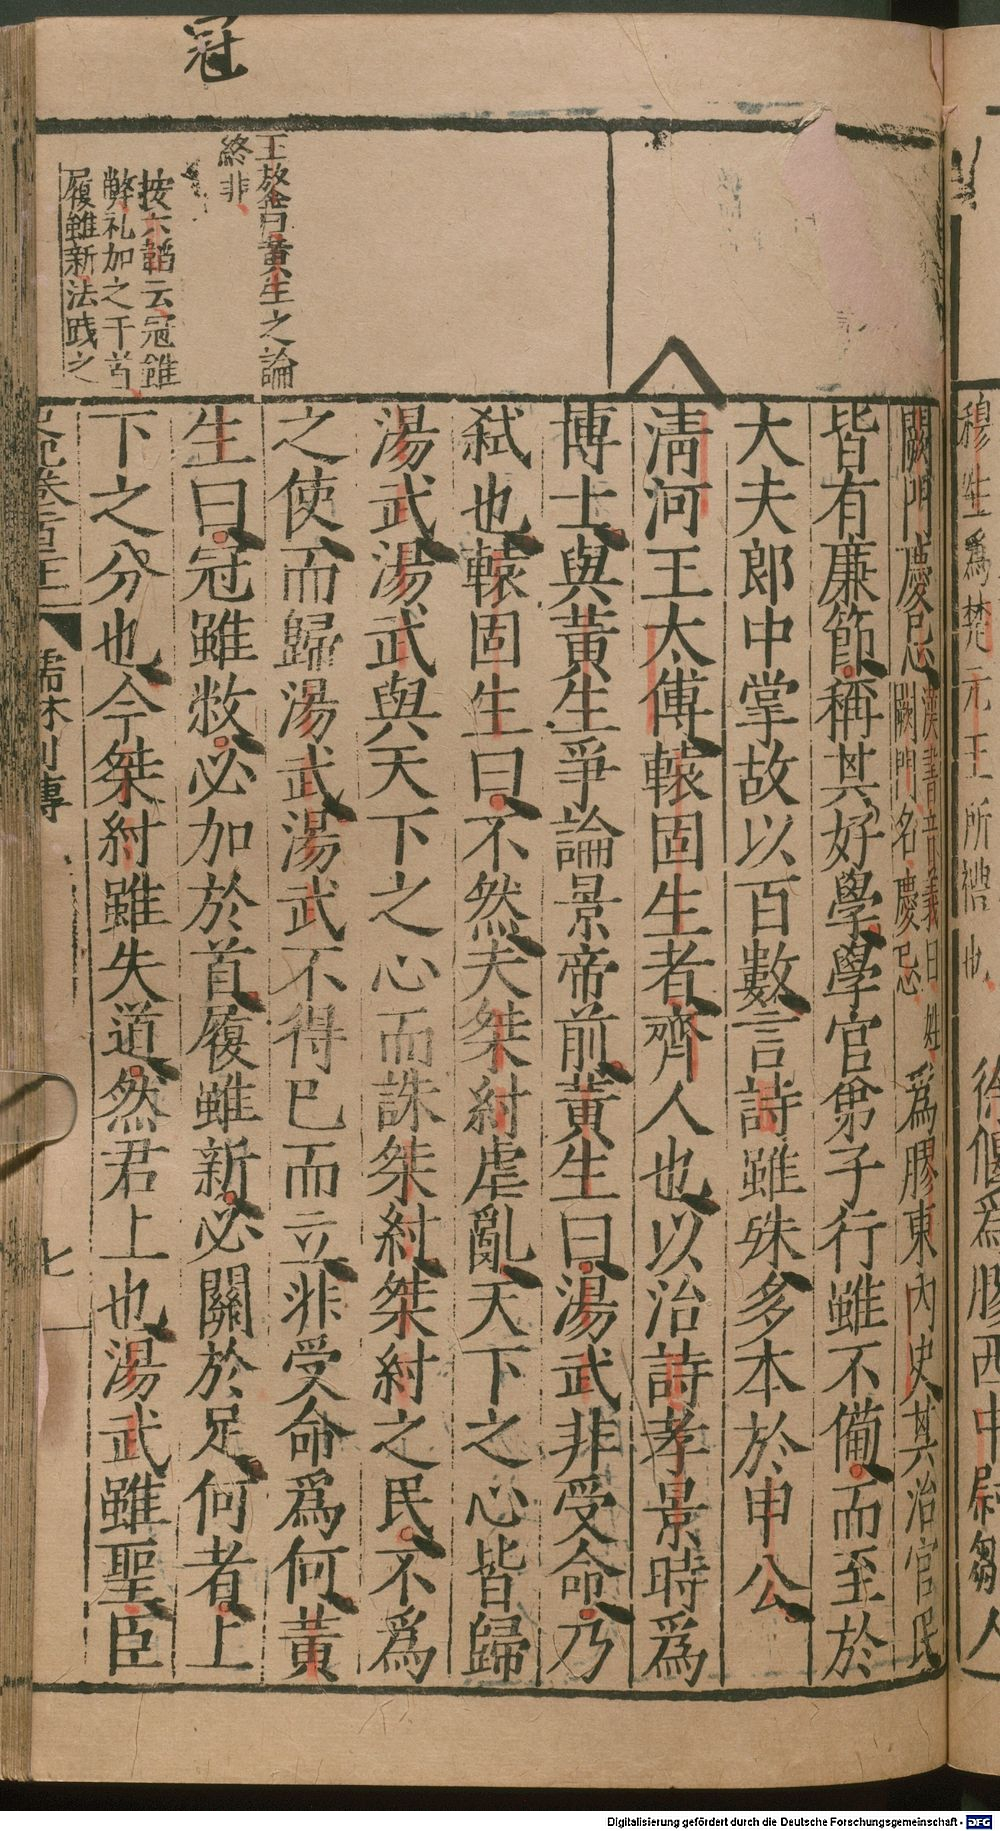 穆生爲楚元王所禮也 徐偃爲膠西中尉鄒人
冠
王敖曰黃生之論
終非
按六韜云冠雖
弊礼加之于首
履雖新法踐之
闕門慶忌漢書音義曰姓闕門名慶忌爲膠東內史其治官民
皆有廉節稱其好學學官弟子行雖不備而至於
大夫郎中掌故以百數言詩雖殊多本於申公
淸河王太傅轅固生者齊人也以治詩孝景時爲
博士與黃生爭論景帝前黃生曰湯武非受命乃
弑也轅固生曰不然夫桀紂虐亂天下之心皆歸
湯武湯武與天下之心而誅桀紂桀紂之民不爲
之使而歸湯武湯武不得已而立非受命爲何黃
生曰冠雖敝必加於首履雖新必關於足何者上
下之分也今桀紂雖失道然君上也湯武雖聖臣
儒林列傳
七
Digitalisierung gefördert durch die Deutsche Forschungsgemeinschaft - DFG